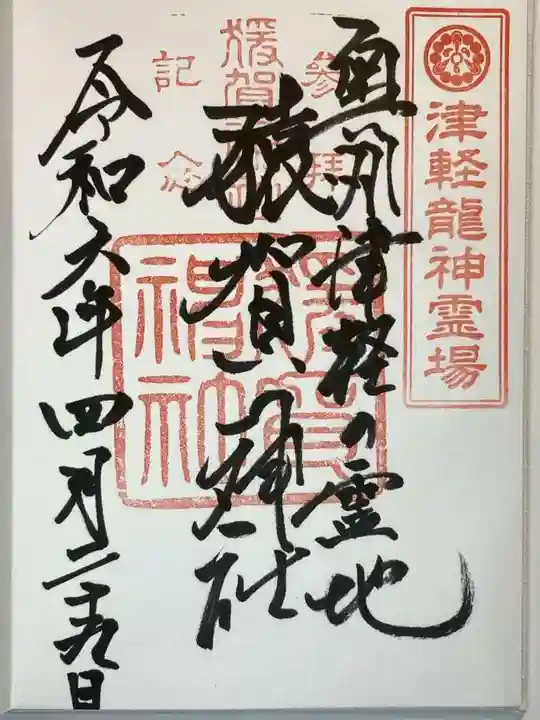 津軽龍神霊場
奥州津軽の霊地
参拝
猿賀神社
猿賀神社
猿賀神社
記念
令和六年四月二十九日